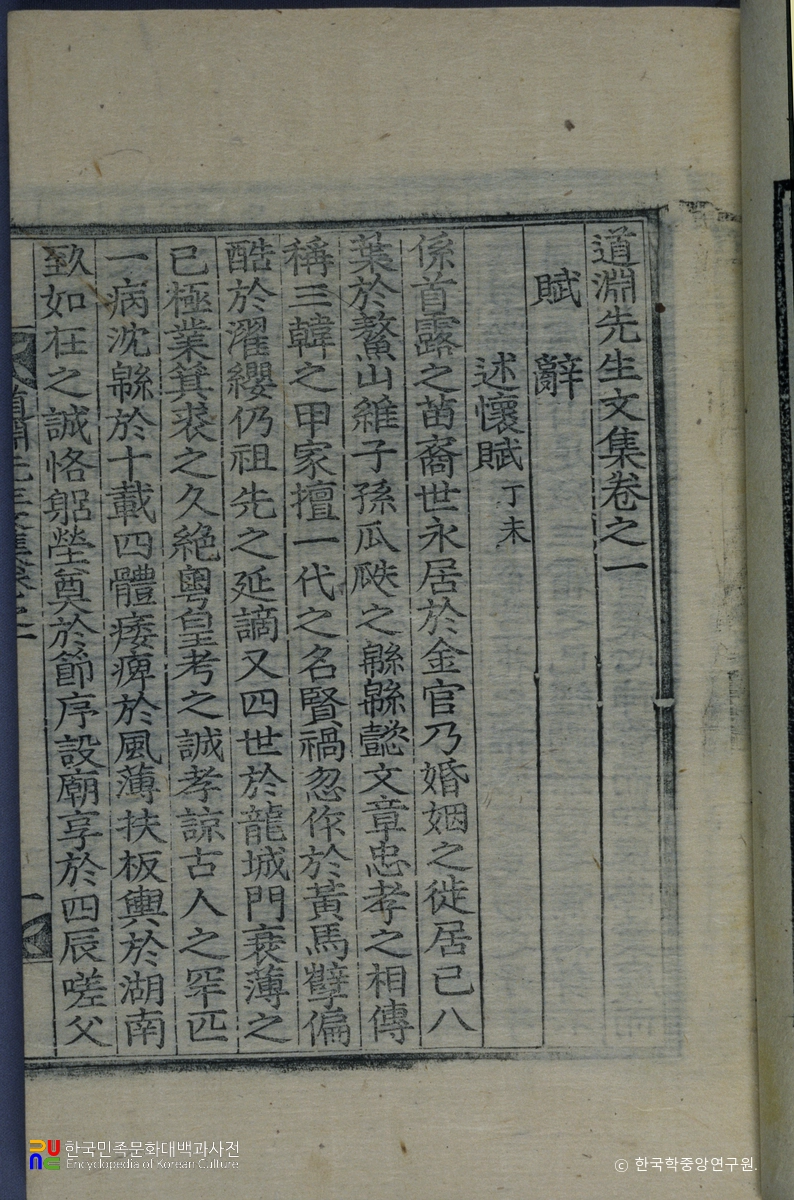 道淵先生文集卷之一
賦 辭
述懷賦 丁未
係首露之苗裔世永居於金官乃婚姻之徙居已八
葉於鰲山維子孫瓜瓞之緜緜懿文章忠孝之相傳
稱三韓之甲家擅一代之名賢禍忽作於黃馬孼偏
酷於濯纓仍祖先之延謫又四世於龍城門衰薄之
已極業箕裘之久絶粤皇考之誠孝諒古人之罕匹
一病沈緜於十載四體痿痺於風薄扶板輿於湖南
致如在之誠恪躬塋奠於節序設廟享於四辰嗟父
道淵先生文集卷之一
一
한국민족문화대백과사전
Encyclopedia of Korean Culture
© 한국학중앙연구원.